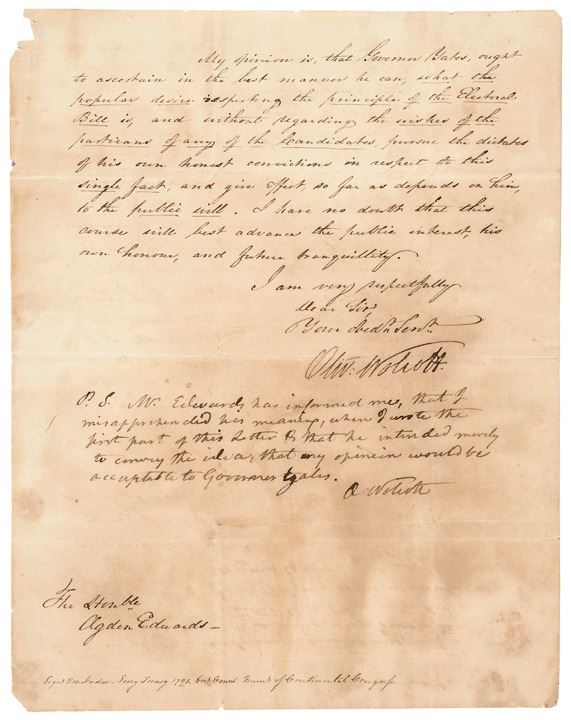 My opinion is, that Governor Yates, ought
to ascertain in the best manner he can, what the
popular desire respecting the principle of the Electoral
Bill is, and without regarding the wishes of the
partizans of any of the Candidates, pursue the dictates
of his own honest convictions in respect to this
single fact, and give effect so far as depends on him,
to the public will. I have no doubt that this
course will best advance the public interest, his
own honour, and future tranquillity.
I am very respectfully
Dear Sir
Your Obedt. Servt.
Oliv: Wolcott.
P. S. Mr. Edwards has informed me, that I
misapprehended his meaning, when I wrote the
first part of this Letter & that he intended merely
to convey the idea, that my opinion would be
acceptable to Governor Yates.
O Wolcott
The Honble
Ogden Edwards
Secy Treasy 1795. Govr Conn. of Continental Congress